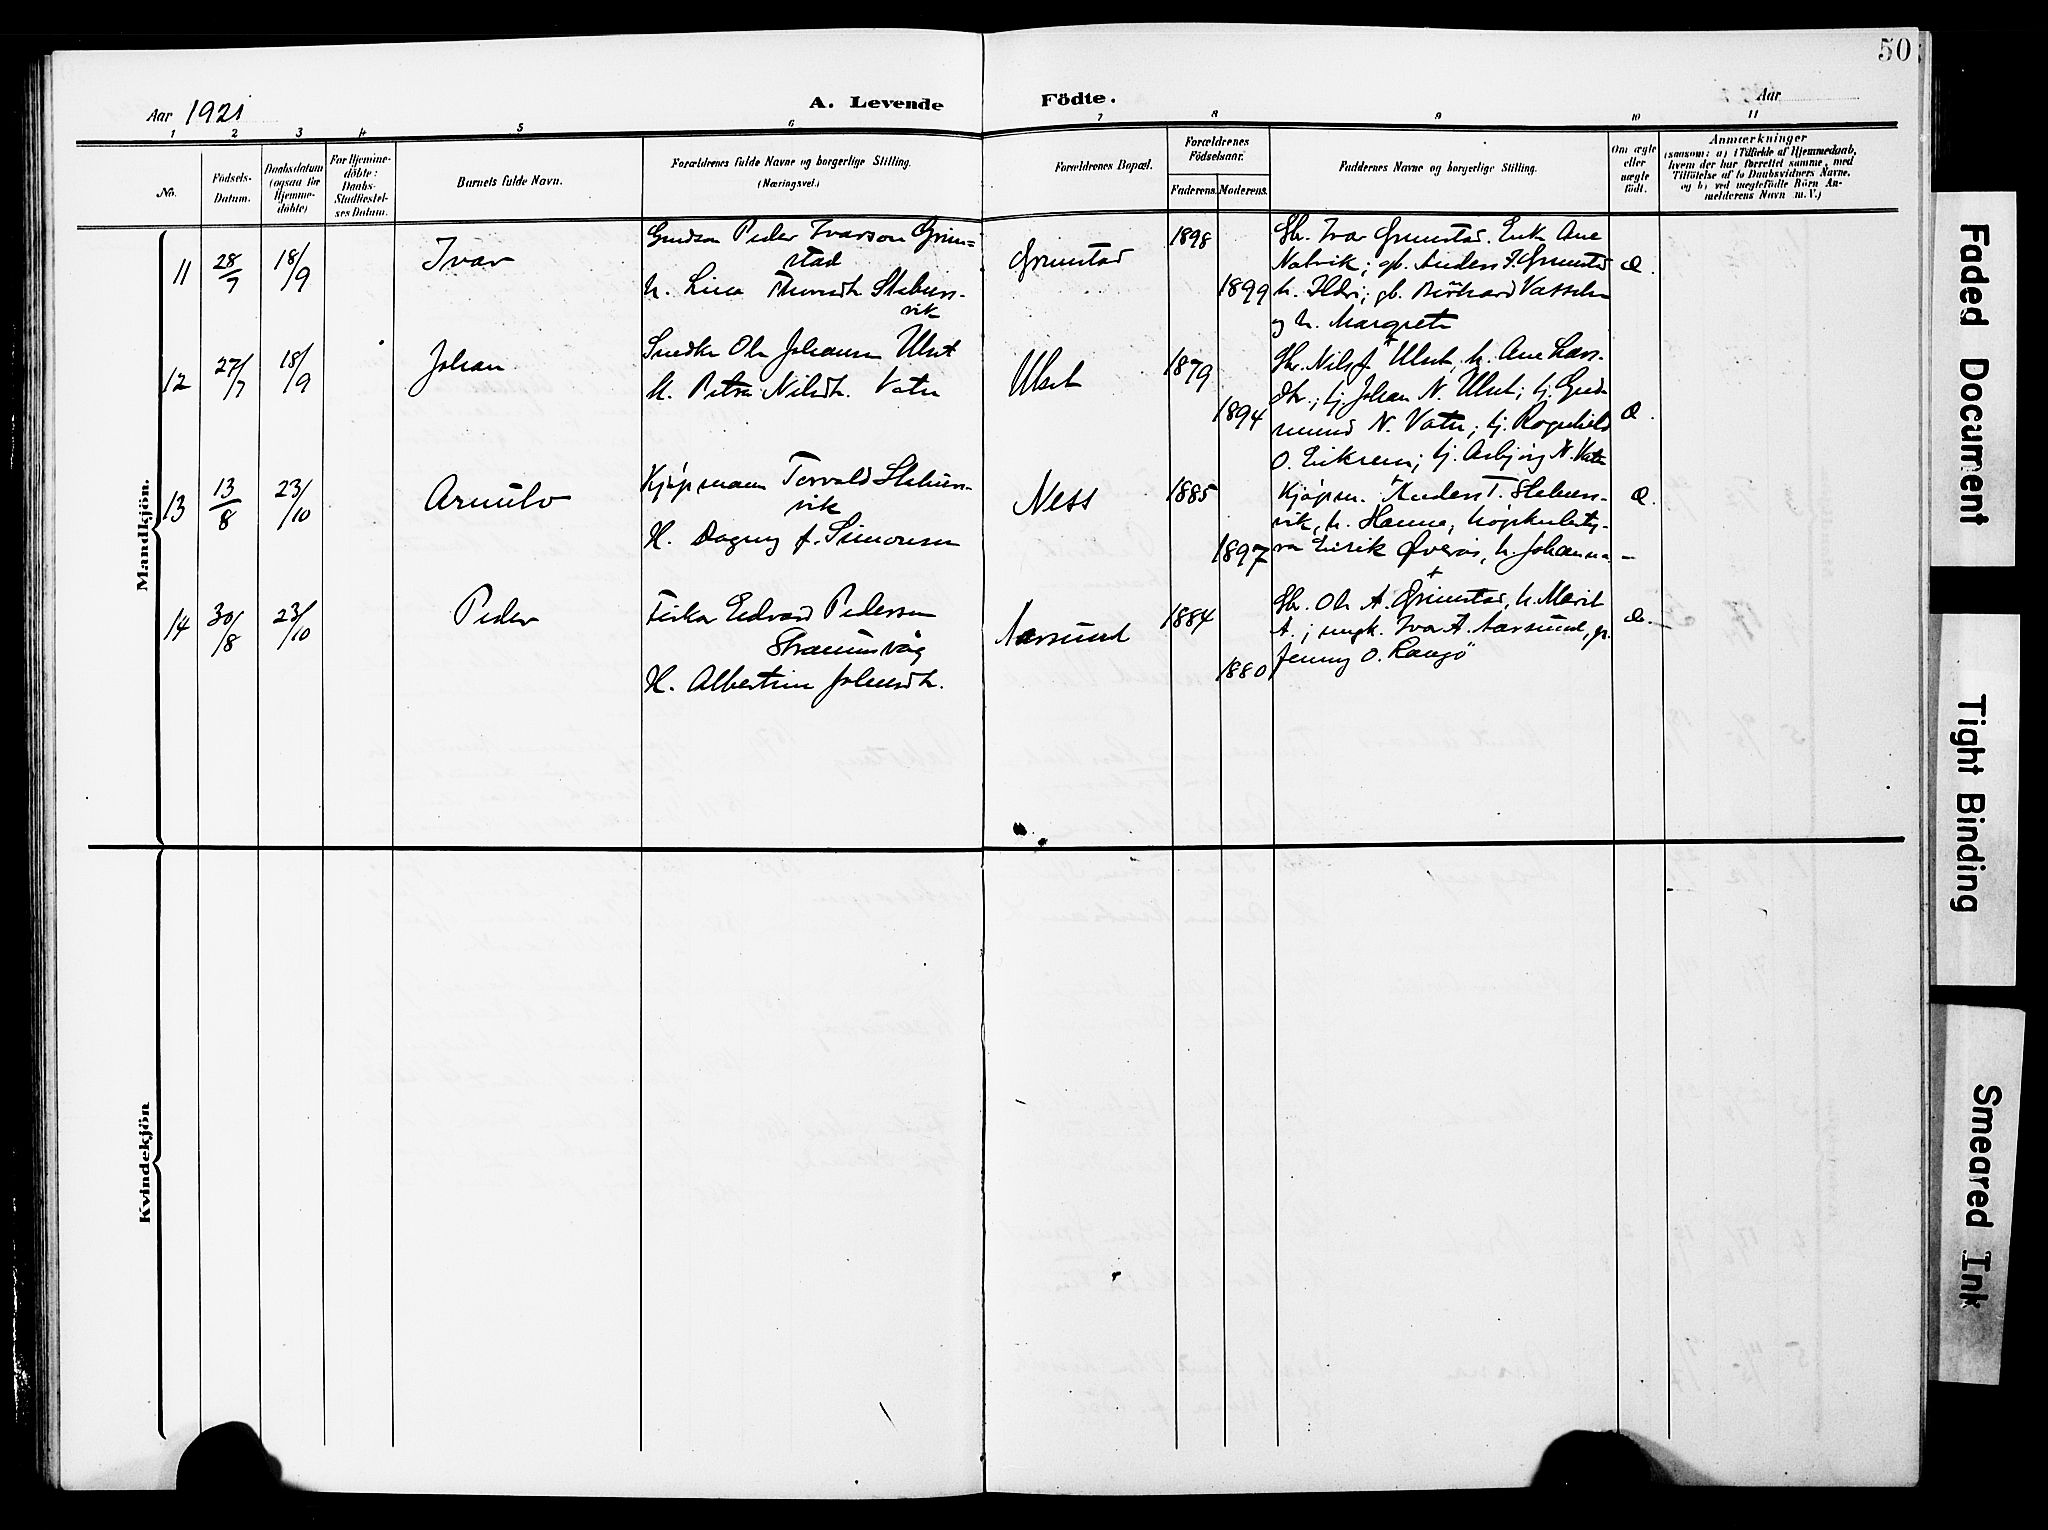 50
Aar 1921
A. Levende Födte.
Aar
1 2 3 4 5 6 7 8 9 10 11
No.
Födsels-
Datum.
Daabsdatum
(ogsaa for
Hjemme-
döbte)
For Hjemme-
döbte:
Daabs-
Stadfæstel-
ses Datum.
Barnets fulde Navn.
Forældrenes fulde Navne og borgerlige Stilling.
(Næringsvei.)
Forældrenes Bopæl.
Forældrenes
Födselsaar.
Faderens. Moderens.
Faddernes Navne og borgerlige Stilling.
Om ægte
eller
uægte
födt.
Anmærkninger
(saasom: a) i Tilfælde af Hjemmedaab,
hvem der har forrettet samme, med
Tilföielse af to Daabsvidners Navne,
og b) ved uægtefödte Börn An-
melderens Navn m. V.)
Mandkjön.
11 28/7 18/9 Ivar
Peder Ivarson Grim=
stad
Grimstad
1898
1899
Ivar Grimstad. Enk. Ane
Nalvik; gb. Anders I. Grimstad
h. Ildri; gb. Vasselen
og h. Margrete
Æ.
12 27/7 18/9 Johan
Snedker Ole Johansen Ulset
H. Petra Nilsdtr. Vatn
Ulset
1879
1894
Nils J. Ulset, h. Ane Lars-
dtr.; Johan N. Ulset; Gud-
mund N. Vatn; Ragnhild
O. Eriksen; Asbjørg N. Vatn
Æ.
13 13/8 23/10 Arnulv
Kjøpmann Torvald Stabens-
vik
H. Dagny f. Simonsen
Ness
1885
1897
Kjøpm. Anders T. Stabens-
vik, h. Hanna,
Eirik Øverås, h. Johanna –
Æ.
14 30/8 23/10 Peder
Fisker Edvard Pedersen
Strømsvåg
H. Albertine Johnsdtr.
Aarsund
1884
1880
Ole A. Grimstad, h. Marit
A.; ungk. Ivar A. Aarsund, p.
Jenny O. Ransö
Æ.
Kvindekjön
Faded Document
Tight Binding
Smeared Ink